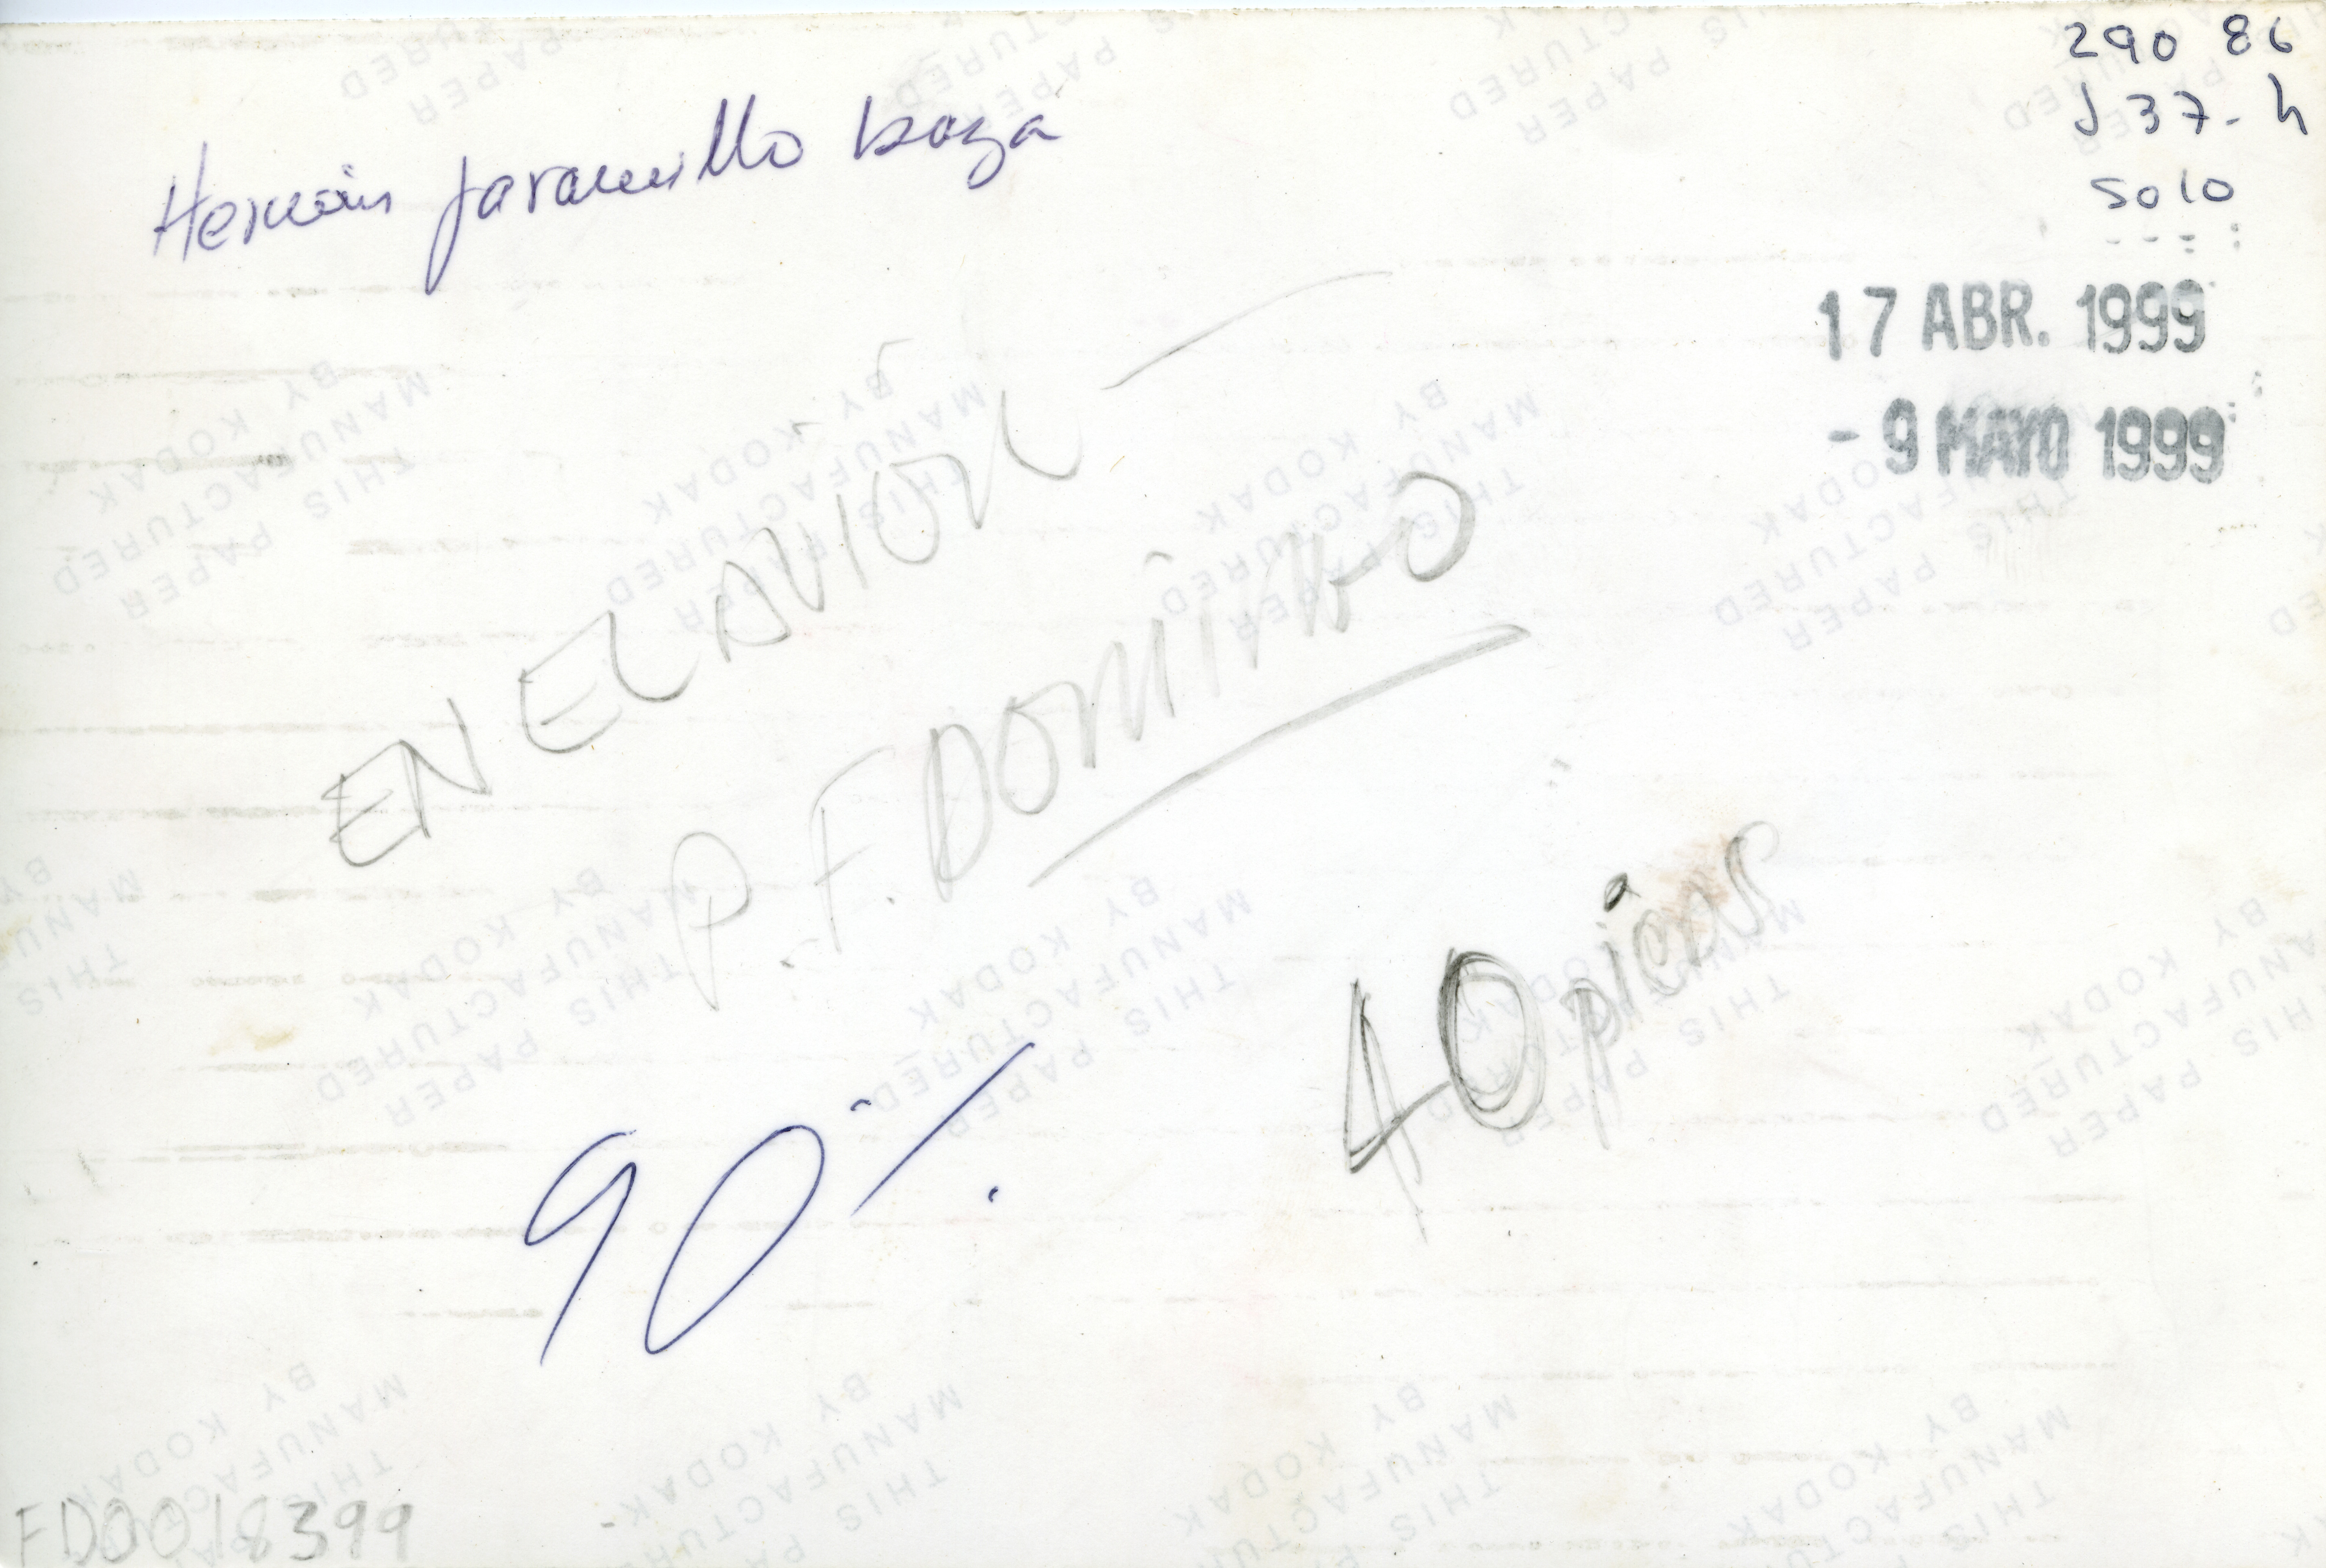 290 86
J 37-h
Solo
Hernán Jaramillo
17 ABR. 1999
- 9 MAYO 1999
EN EL AVION
P. F. DOMINGO
40 picas
90%
FD0018399
THIS PAPER
MANUFACTURED
BY KODAK